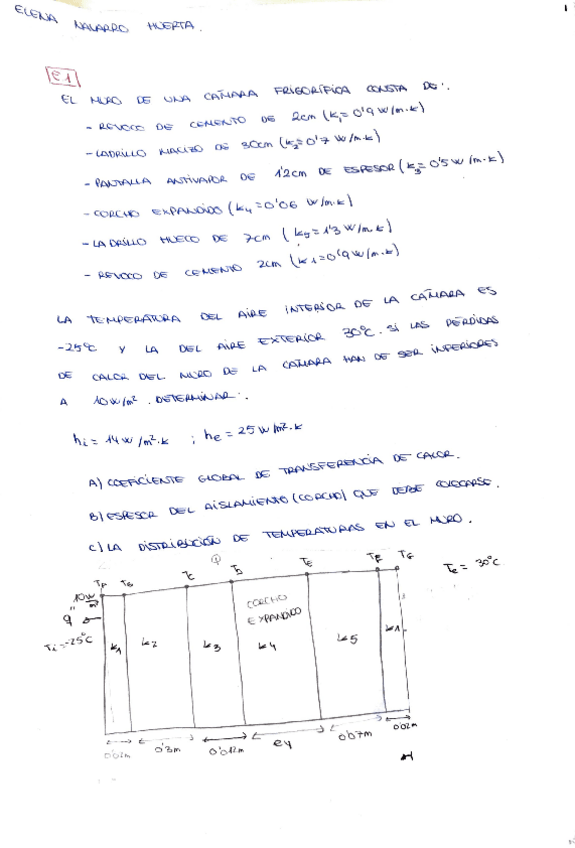 ELENA NAVARRO HUERTA.
1
C1
EL MURO DE UNA CAÑARA FRIGORÍFICA CONSTA DE:
- REVOCO DE CEMENTO DE 2cm (k₁=0'9 W/m·k)
- LADRILLO MACIZO DE 30cm (k₂=0'7 W/m·k)
- PANTALLA ANTIVAPOR DE 1'2cm DE ESPESOR (k₃=0'5 W/m·k)
- CORCHO EXPANDIDO (k₄=0'06 W/m·k)
- LADRILLO HUECO DE 7cm (k₅=1'3 W/m·k)
- REVOCO DE CEMENTO 2cm (k1=0'9 W/m·k)
LA TEMPERATURA DEL AIRE INTERIOR DE LA CÁMARA ES
-25ºC Y LA DEL AIRE EXTERIOR 30ºC. SI LAS PÉRDIDAS
DE CALOR DEL MURO DE LA CÁMARA HAN DE SER INFERIORES
A 10 W/m². DETERMINAR:
hi = 14 W/m²·k ; he = 25 W/m²·k
A) COEFICIENTE GLOBAL DE TRANSFERENCIA DE CALOR.
B) ESPESOR DEL AISLAMIENTO (CORCHO) QUE DEBE COLOCARSE.
C) LA DISTRIBUCIÓN DE TEMPERATURAS EN EL MURO.
TA TB TC TD TE TF TG Te = 30ºC
10 W/m²
q"
Ti=-25ºC
CORCHO
EXPANDIDO
k1 k2 k3 k4 k5 k1
0'02m 0'3m 0'012m e4 0'07m 0'02m